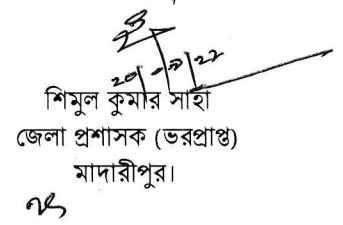 শিমুল কুমার সাহা
জেলা প্রশাসক (ভরপ্রাপ্ত)
মাদারীপুর।